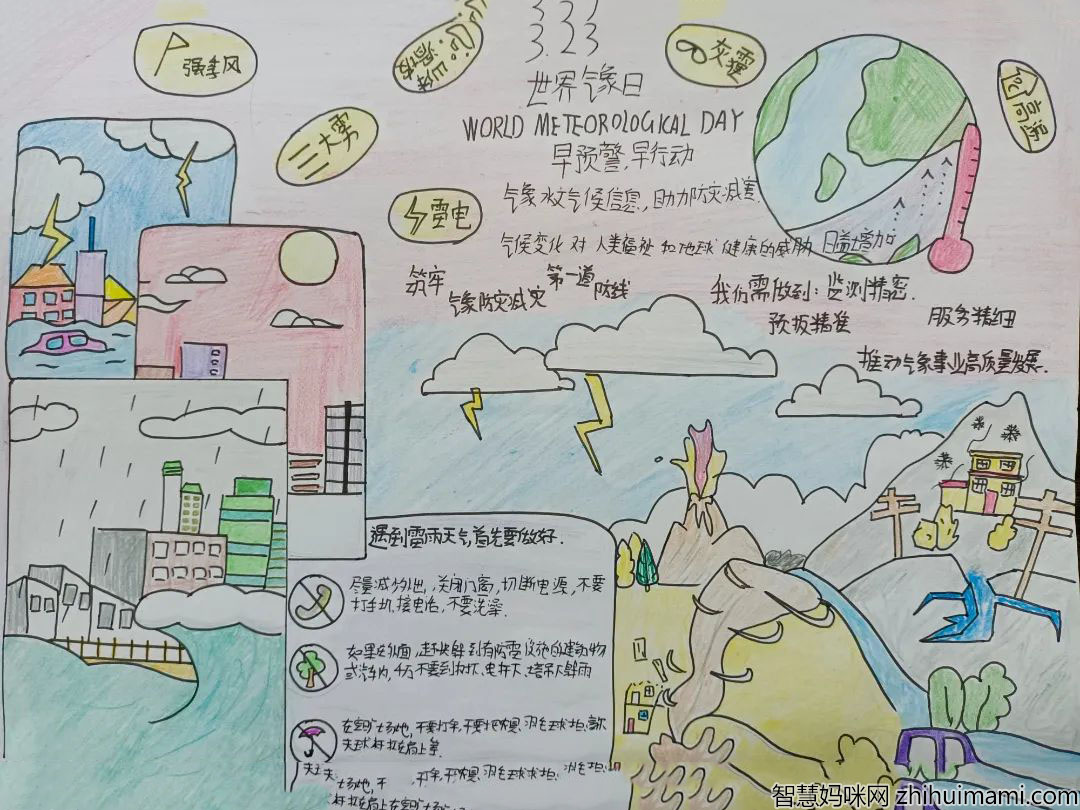 强季风
灰霾
高温
大雾
雷电
3.23
3.23
世界气象日
WORLD METEOROLOGICAL DAY
早预警,早行动
气象水文气候信息,助力防灾减害
气候变化对人类福祉和地球健康的威胁日益增加
筑牢
气象防灾减灾
第一道
防线
我们需做到:监测精密.
预报精准
服务精细
推动气象事业高质量发展.
遇到雷雨天气,首先要做好.
尽量减少外出,关闭门窗,切断电源,不要
打手机,接电话,不要洗澡.
如果在外面,赶快躲到有防雷设施的建筑物
或汽车内,千万不要到树下、电杆下、塔吊下躲雨
在空旷场地,不要打伞,不要把
智慧妈咪网 zhihuimami.com